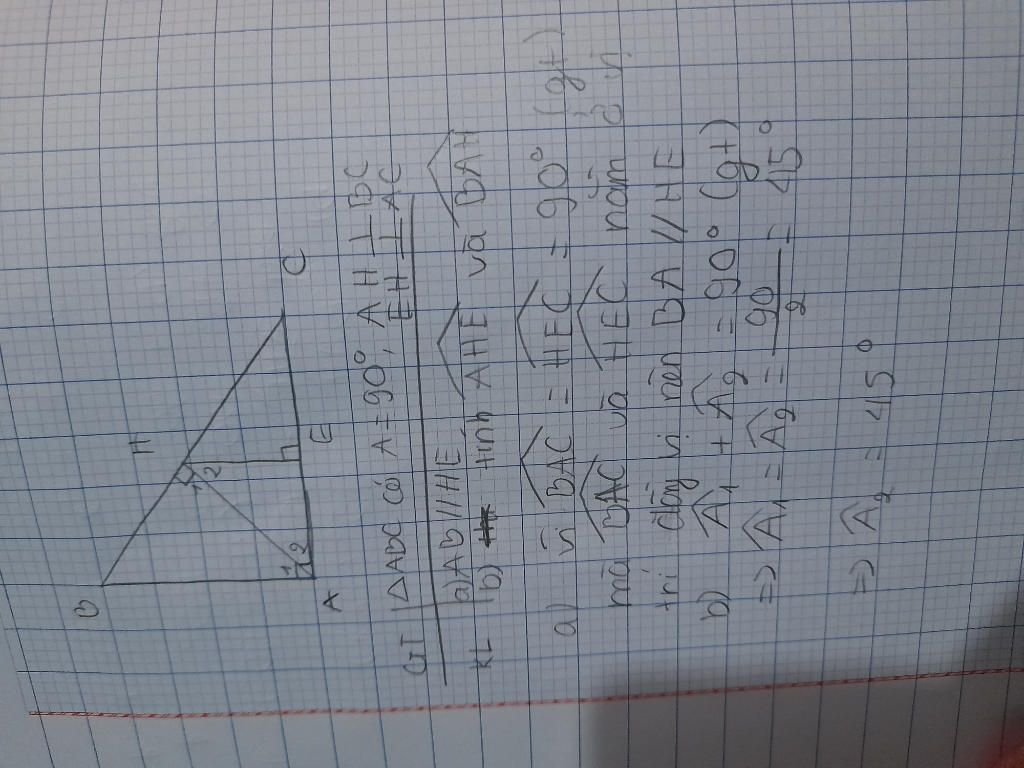 B
H
1 2
1 2
A
E
C
GT | △ABC có A = 90°, AH ⊥ BC
EH ⊥ AC
KL | a) AB // HE
b) tính AHE và BAH
a) vì BAC = HEC = 90° (gt)
mà BAC và HEC nằm ở vị
trí đồng vị nên BA // HE
b) Â1 + Â2 = 90° (gt)
=> Â1 = Â2 = 90/2 = 45°
=> Â2 = 45°